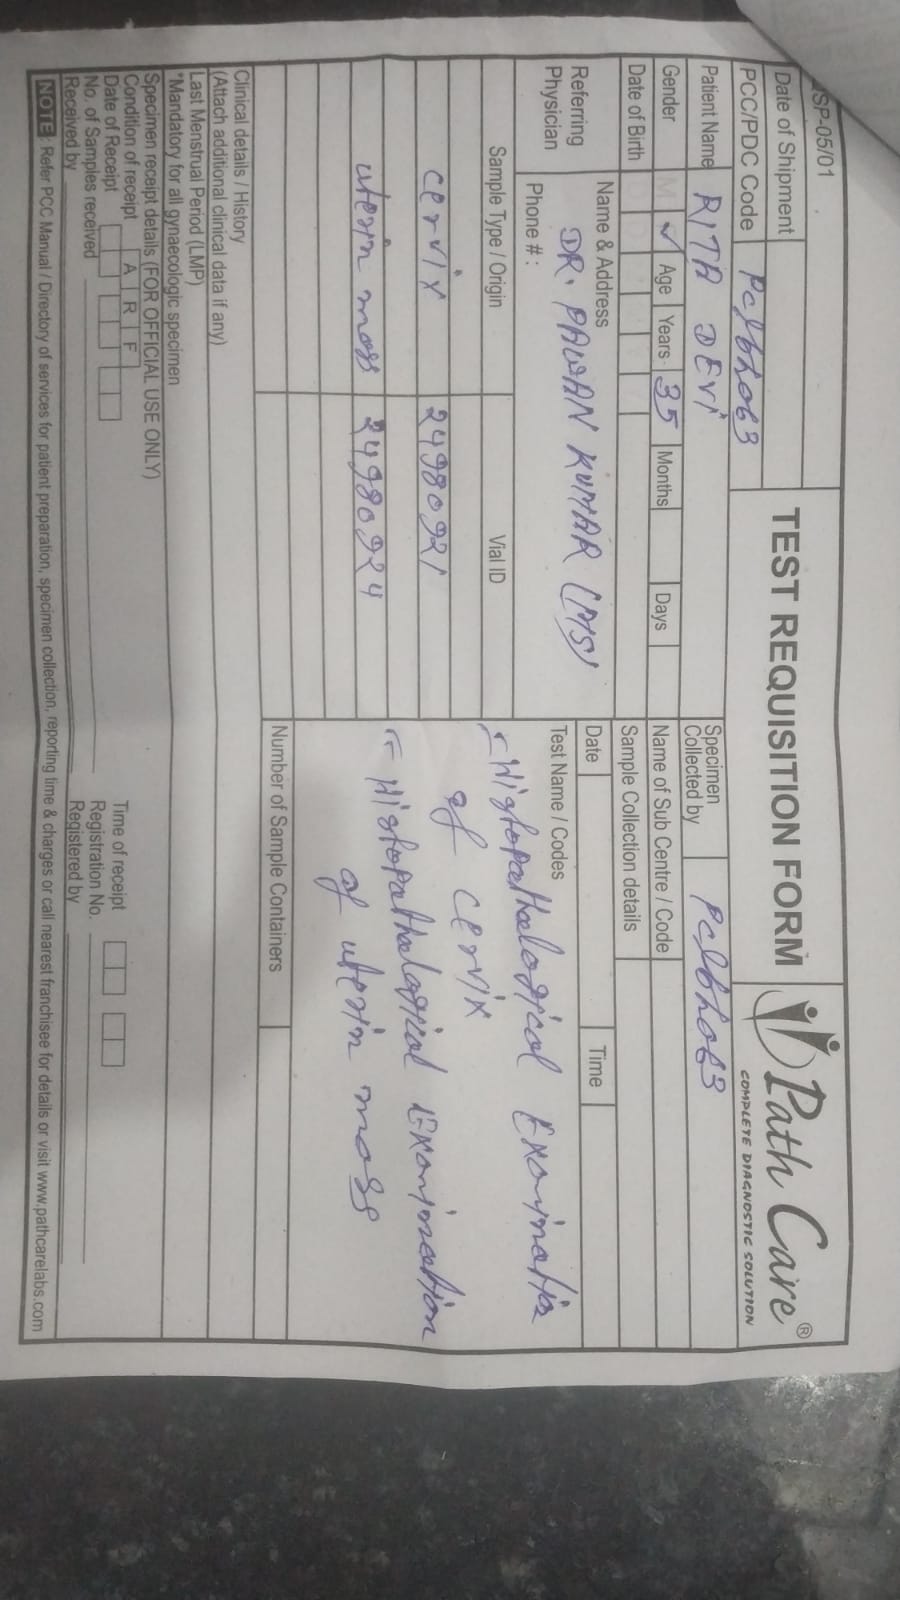 SP-05/01
TEST REQUISITION FORM
Path Care®
COMPLETE DIAGNOSTIC SOLUTION
Date of Shipment
PCC/PDC Code
Patient Name RITA DEVI
Gender M ✓ Age Years 35 Months Days
Date of Birth
Specimen Collected by
Name of Sub Centre / Code
Sample Collection details
Date Time
Referring Physician
Name & Address DR. PAWAN KUMAR (MS)
Phone # :
Sample Type / Origin Vial ID Test Name / Codes
cervix 24980921
uterin mass 24980924
Histopathological Examination
of cervix
Histopathological Examination
of uterin mass
Number of Sample Containers
Clinical details / History
(Attach additional clinical data if any)
Last Menstrual Period (LMP)
*Mandatory for all gynaecologic specimen
Specimen receipt details (FOR OFFICIAL USE ONLY)
Condition of receipt A R F
Date of Receipt Time of receipt
No. of Samples received Registration No.
Received by Registered by
NOTE : Refer PCC Manual / Directory of services for patient preparation, specimen collection, reporting time & charges or call nearest franchisee for details or visit www.pathcarelabs.com